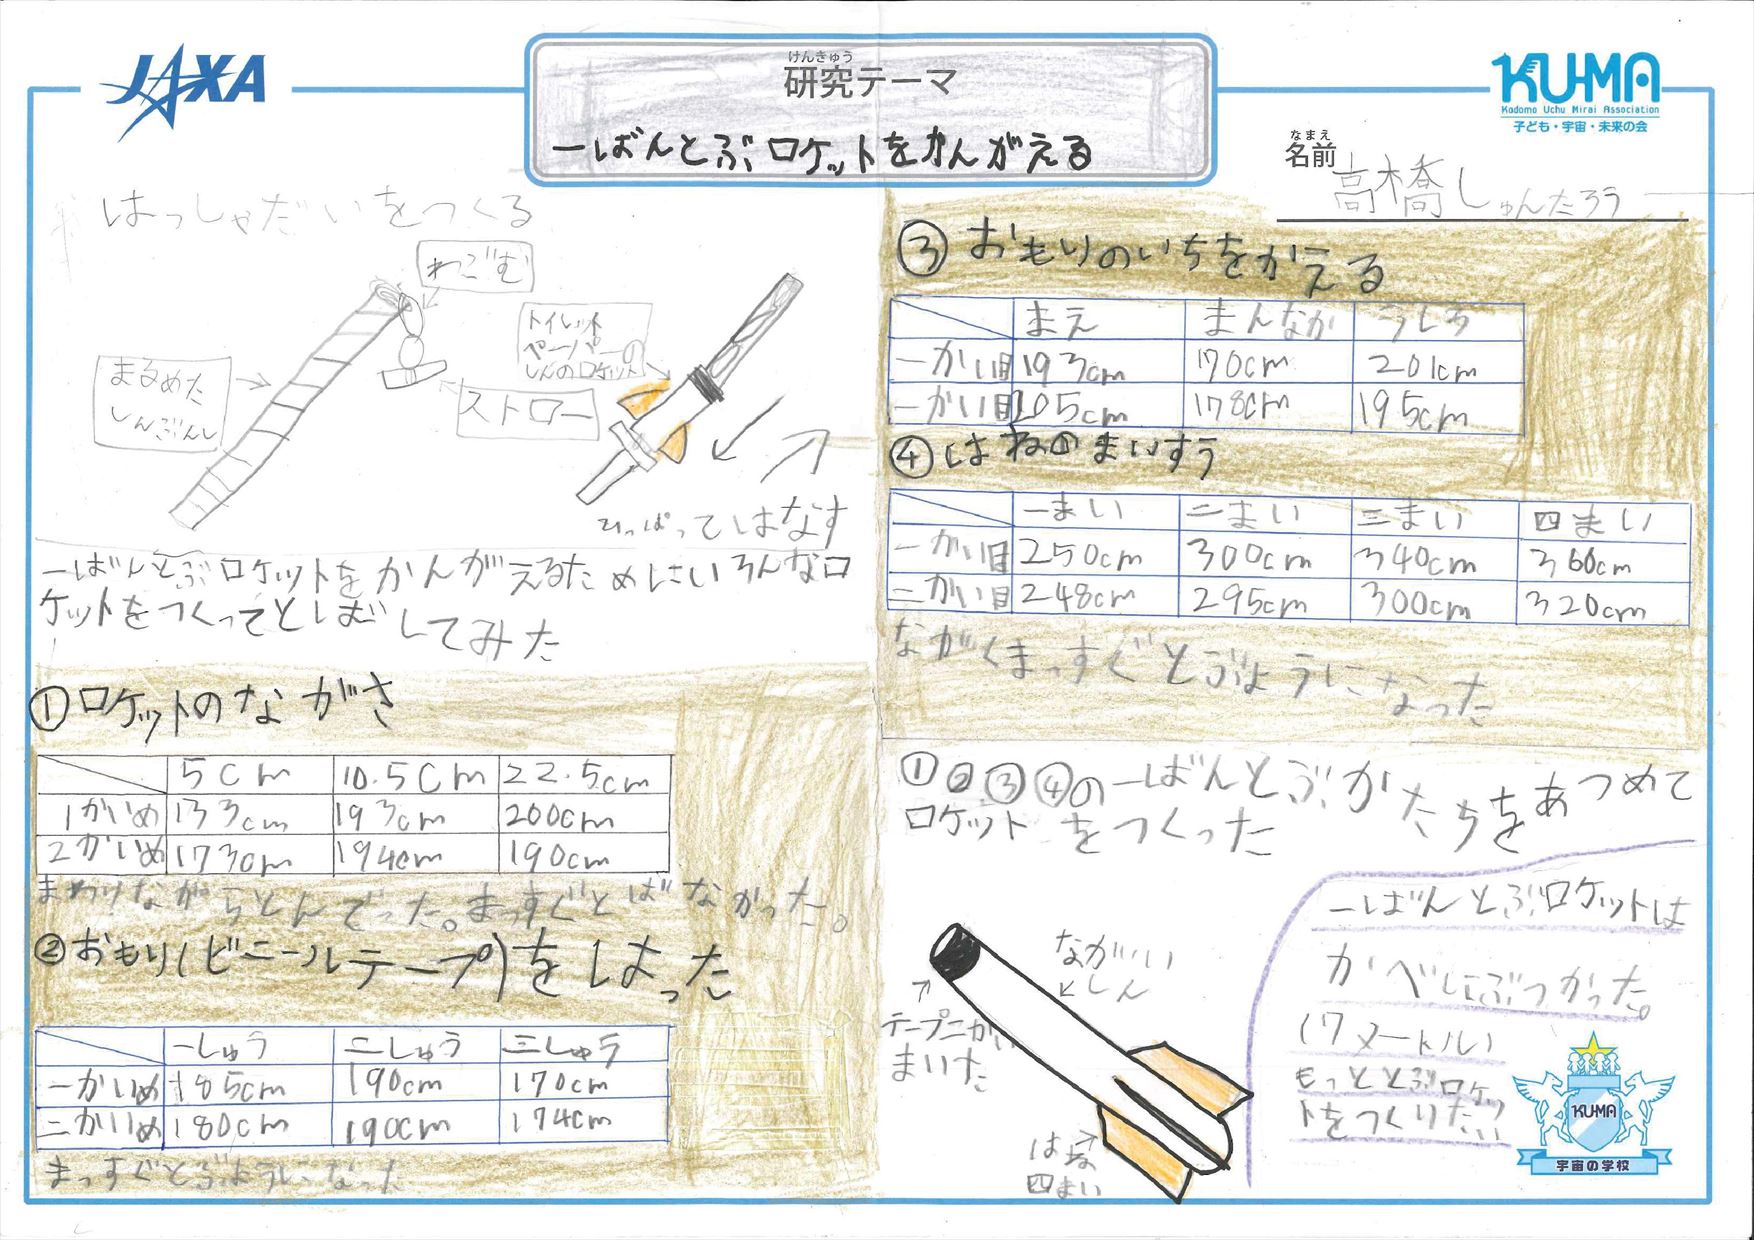 JAXA
けんきゅう
研究テーマ
一ばんとぶロケットをかんがえる
KU-MA
Kodomo Uchu Mirai Association
子ども・宇宙・未来の会
なまえ
名前
高橋しゅんたろう
はっしゃだいをつくる
わごむ
まるめた
しんぶんし
ストロー
トイレット
ペーパーの
しんのロケット
ひっぱってはなす
一ばんとぶロケットをかんがえるためにいろんなロ
ケットをつくってとばしてみた
①ロケットのながさ
5cm 10.5cm 22.5cm
1かいめ 133cm 193cm 200cm
2かいめ 173cm 194cm 190cm
まわりながらとんでった。まっすぐとばなかった。
②おもり(ビニールテープ)をはった
一しゅう 二しゅう 三しゅう
一かいめ 185cm 190cm 170cm
二かいめ 180cm 190cm 174cm
まっすぐとぶようになった
③おもりのいちをかえる
まえ まんなか うしろ
一かい目 193cm 170cm 201cm
二かい目 205cm 178cm 195cm
④はねのまいすう
一まい 二まい 三まい 四まい
一かい目 250cm 300cm 340cm 360cm
二かい目 248cm 295cm 300cm 320cm
ながくまっすぐとぶようになった
①②③④の一ばんとぶかたちをあつめて
ロケットをつくった
ながい
しん
テープ二かい
まいた
はね
四まい
一ばんとぶロケットは
かべにぶつかった。
(7メートル)
もっととぶロケッ
トをつくりたい
KUMA
宇宙の学校